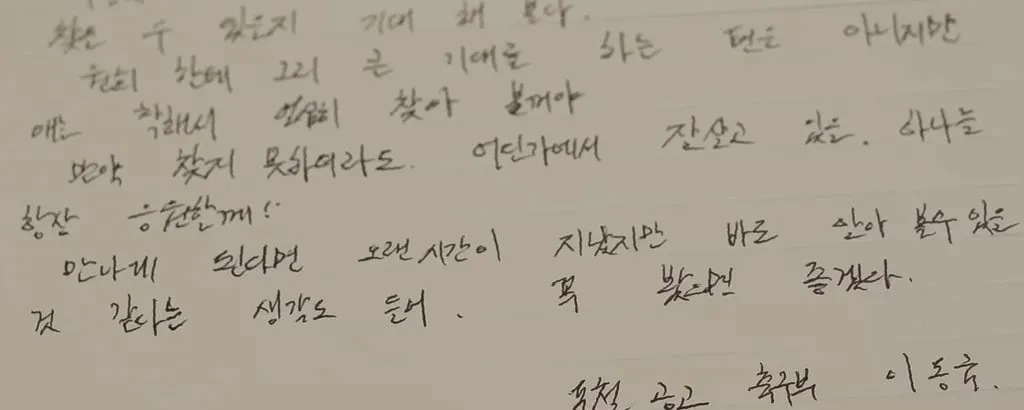 찾을 수 있을지 기대 해 본다.
한테 그리 큰 기대를 하는 편은 아니지만
애는 착해서 열심히 찾아 볼꺼야
만약 찾지 못하여라도. 어딘가에서 잘살고 있을. 하나를
항잔 응원할께!
만나게 된다면 오랜 시간이 지났지만 바로 알아 볼수 있을
것 같다는 생각도 들어. 꼭 봤으면 좋겠다.
공고 축구부 이동국.